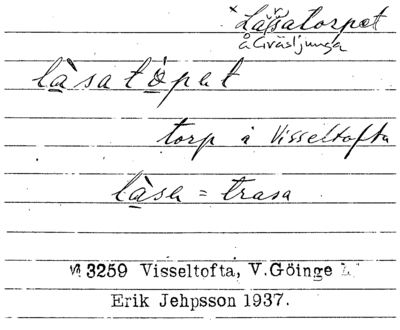 *Lasatorpet
å Gräsljunga
làsatöpet
torp å Visseltofta
làsa = trasa
VI 3259 Visseltofta, V.Göinge
Erik Jehpsson 1937.